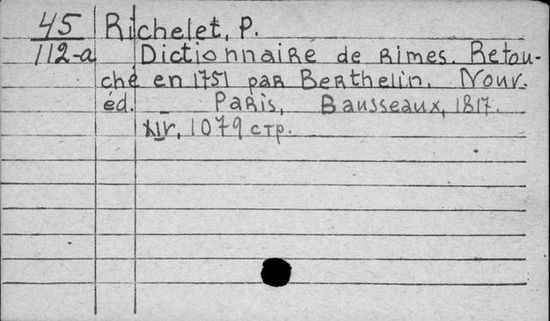 45 Richelet, P.
112-a Dictionnaire de Rimes. Retou-
ché en 1751 par Berthelin. Nouv.
éd. – Paris, Bausseaux, 1817.
XIV, 1079 стр.